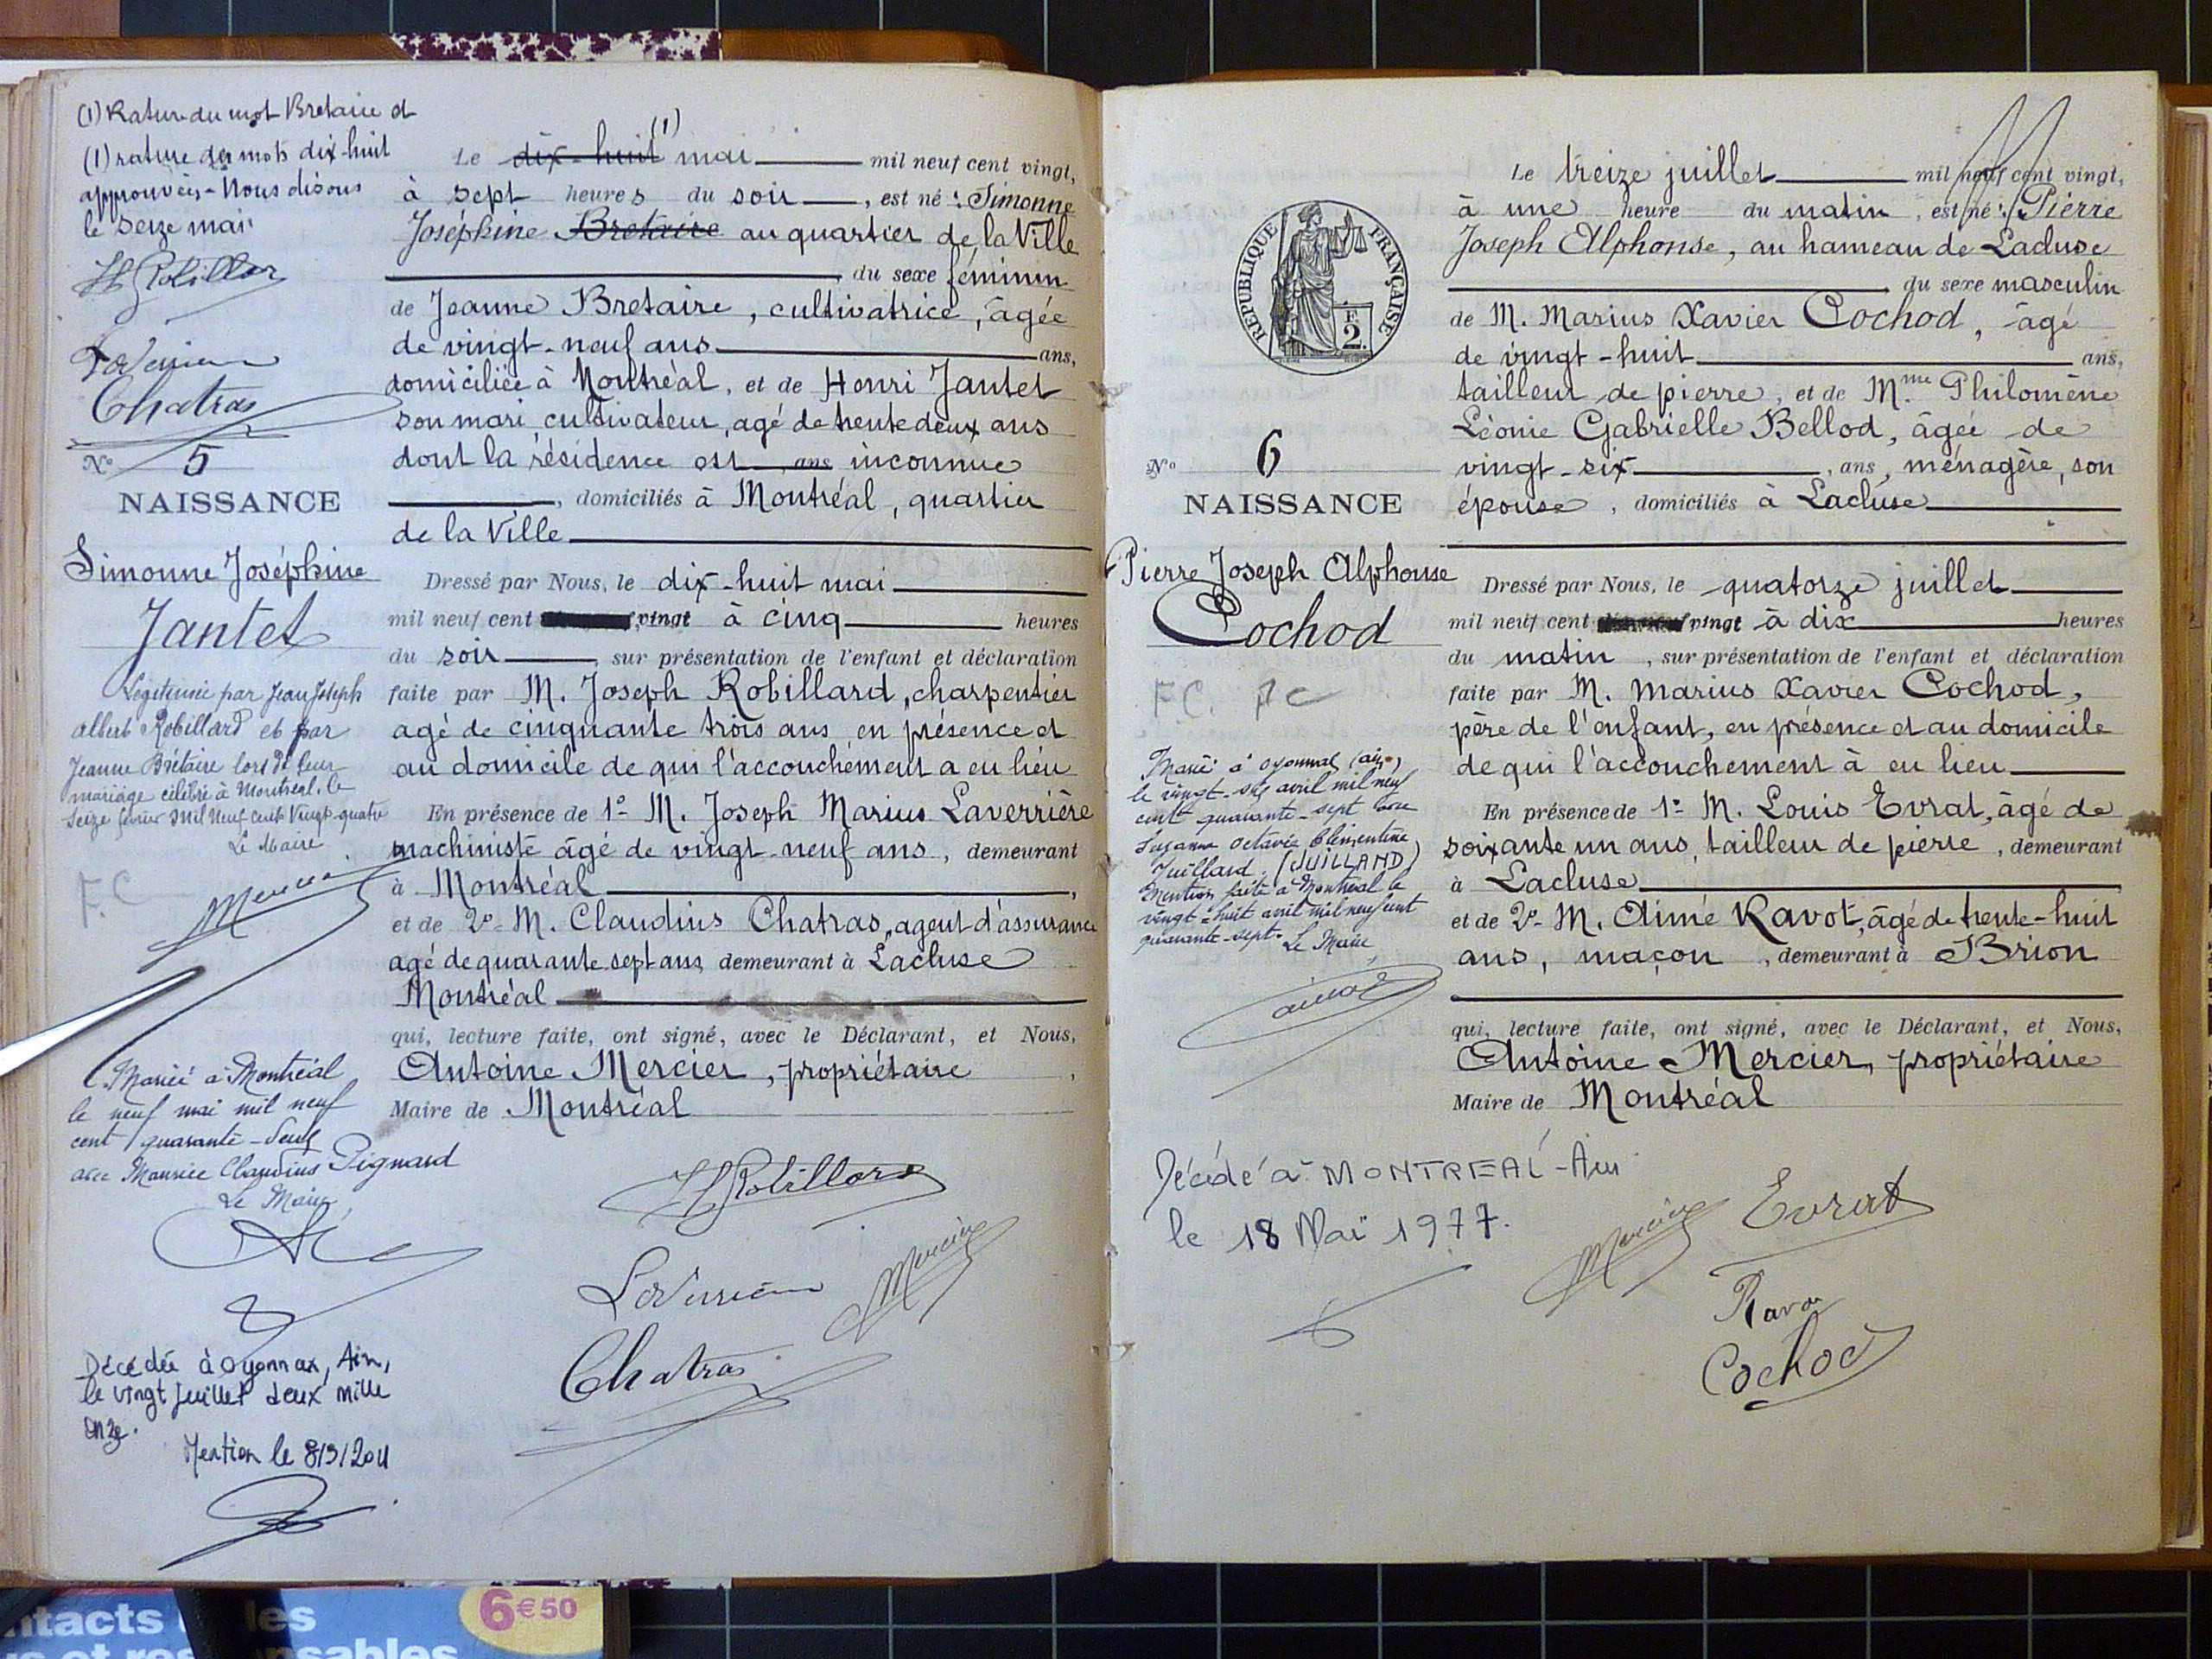 (1) Rature du mot Bretaire et
(1) rature des mots dix-huit
approuvées - Nous disons
le seize mai
Chatras
N° 5
NAISSANCE
Simonne Joséphine
Jantet
Légitimée par Jean Joseph
Albert Robillard et par
Jeanne Brétaire lors de leur
mariage célébré à Montréal, le
seize février mil neuf cent vingt-quatre
Le Maire
F.C
Mariée à Montréal
le neuf mai mil neuf
cent quarante-
avec Maurice Claudius Pignard
Le Maire,
Décédée à Oyonnax, Ain,
le vingt juillet deux mille
onze.
Mention le
Le dix-huit (1) mai mil neuf cent vingt,
à sept heures du soir, est né : Simonne
Joséphine Bretaire au quartier de la Ville
du sexe féminin
de Jeanne Bretaire, cultivatrice, âgée
de vingt-neuf ans ans,
domiciliée à Montréal, et de Henri Jantet
son mari, cultivateur, agé de trente deux ans
dont la résidence est ans inconnue
, domiciliés à Montréal, quartier
de la Ville
Dressé par Nous, le dix-huit mai
mil neuf cent vingt à cinq heures
du soir, sur présentation de l'enfant et déclaration
faite par M. Joseph Robillard, charpentier
agé de cinquante trois ans en présence et
au domicile de qui l'accouchement a eu lieu
En présence de 1° M. Joseph Marius Laverrière
machiniste âgé de vingt-neuf ans, demeurant
à Montréal,
et de 2° M. Claudius Chatras, agent d'assurance
agé de quarante sept ans, demeurant à Lacluse
Montréal
qui, lecture faite, ont signé, avec le Déclarant, et Nous,
Antoine Mercier, propriétaire,
Maire de Montréal
Chatras
REPUBLIQUE FRANÇAISE
F.
2.
N° 6
NAISSANCE
Pierre Joseph Alphonse
Cochod
F.C.
Marié à Oyonnax (ain)
le vingt-six avril mil neuf
cent quarante-sept avec
Suzanne Octavie Clémentine
Juillard. (JUILLAND)
Mention faite à Montréal le
vingt-huit avril mil neuf cent
quarante-sept.
Le Maire,
Le treize juillet mil neuf cent vingt,
à une heure du matin, est né : Pierre
Joseph Alphonse, au hameau de Lacluse
du sexe masculin
de M. Marius Xavier Cochod, âgé
de vingt-huit ans,
tailleur de pierre, et de Mme Philomène
Léonie Gabrielle Bellod, âgée de
vingt-six, ans, ménagère, son
épouse, domiciliés à Lacluse
Dressé par Nous, le quatorze juillet
mil neuf cent vingt à dix heures
du matin, sur présentation de l'enfant et déclaration
faite par M. Marius Xavier Cochod,
père de l'enfant, en présence et au domicile
de qui l'accouchement à eu lieu
En présence de 1° M. Louis Evrat, âgé de
soixante un ans, tailleur de pierre, demeurant
à Lacluse
et de 2° M. Aimé Ravot, âgé de trente-huit
ans, maçon, demeurant à Brion
qui, lecture faite, ont signé, avec le Déclarant, et Nous,
Antoine Mercier, propriétaire
Maire de Montréal
Décédé à MONTREAL-Ain
le 18 Mai 1977.
Evrat
Cochod
ntacts les
6€50